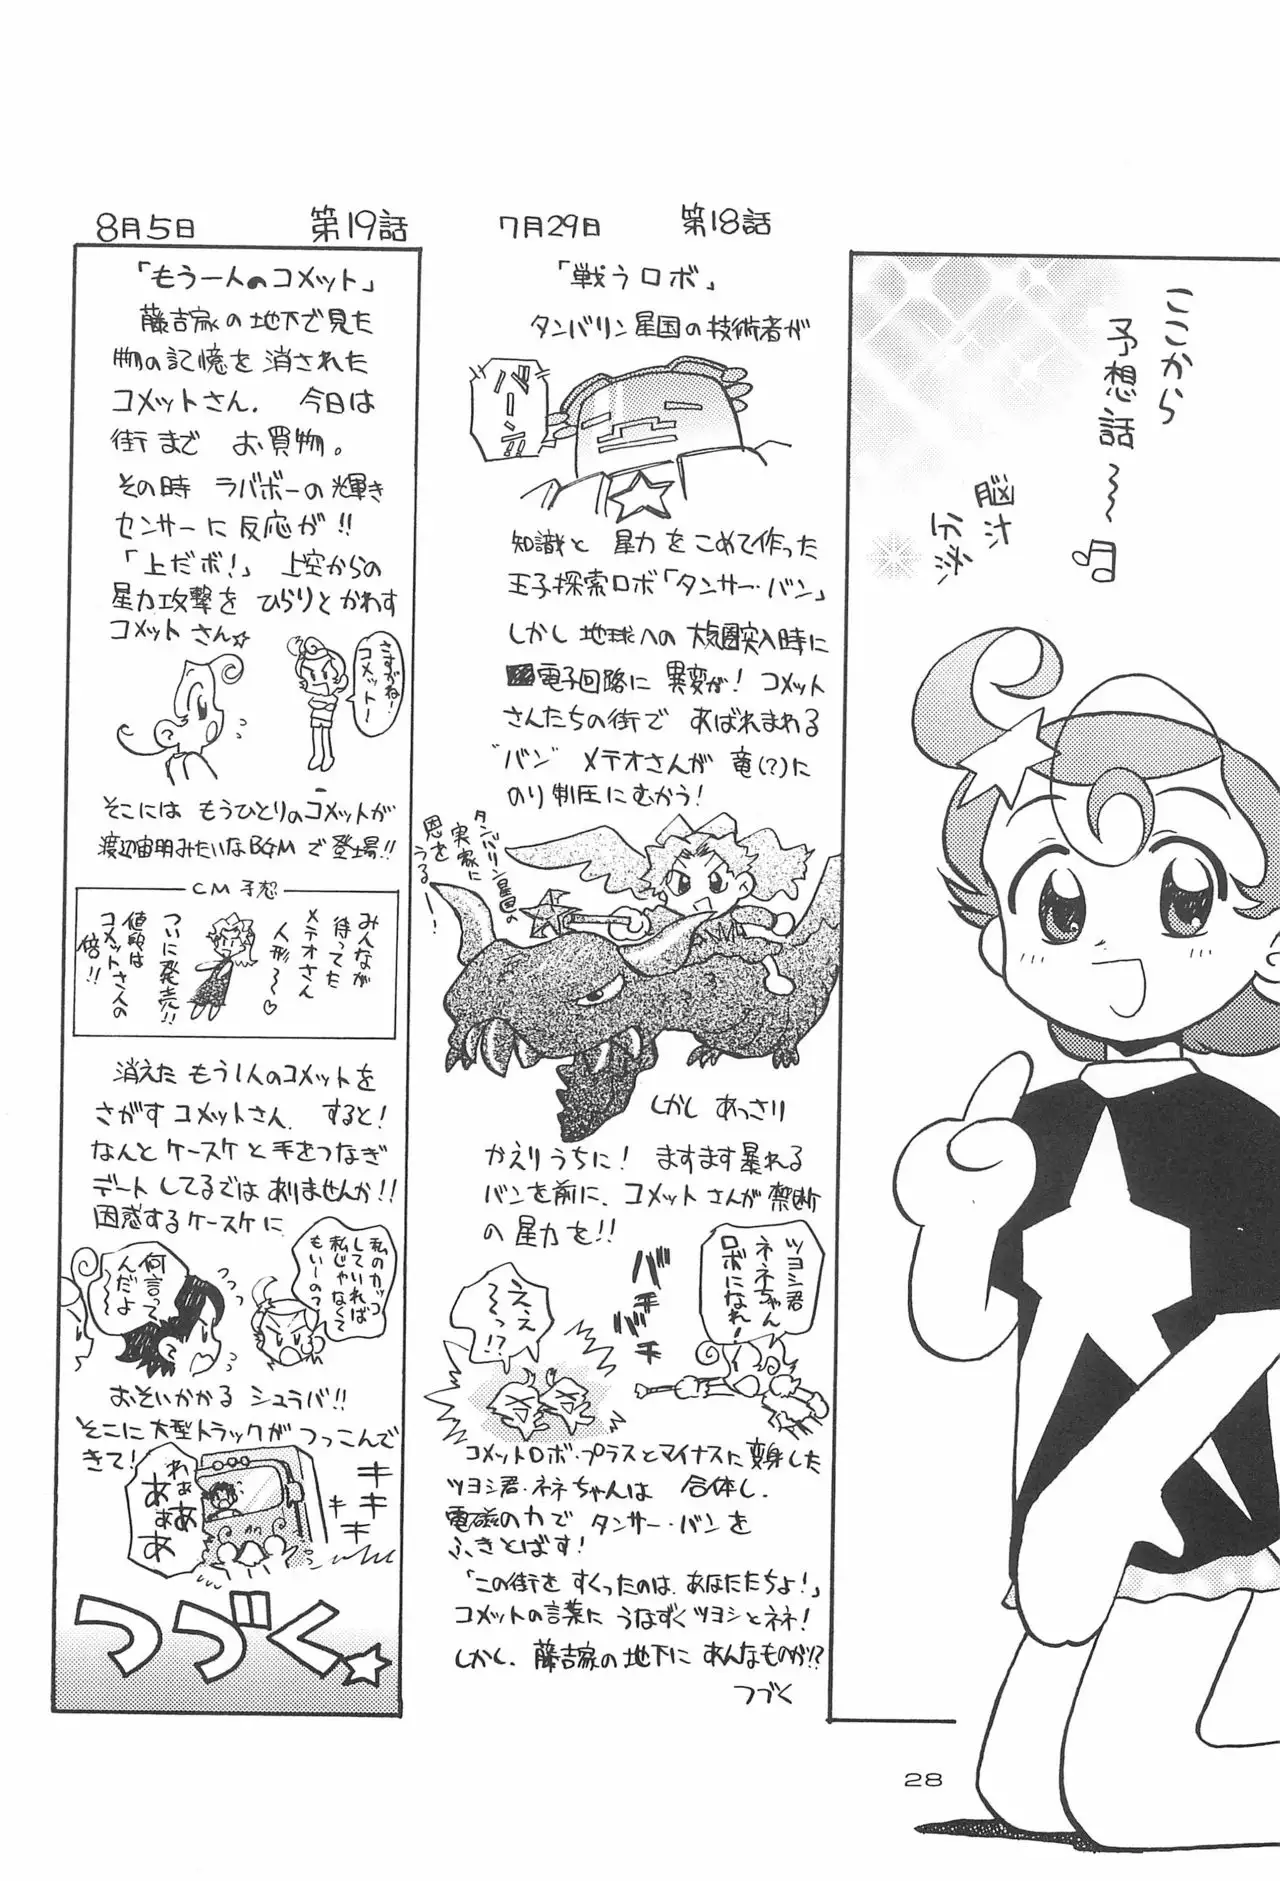 ここから
予想話〜〜♪
脳汁
分泌
7月29日 第18話
「戦うロボ」
タンバリン星国の技術者が
バーン!!
知識と 星力をこめて作った
王子探索ロボ「タンサー・バン」
しかし 地球への 大気圏突入時に
電子回路に 異変が! コメット
さんたちの街で あばれまわる
"バン" メテオさんが 竜(?)に
のり 制圧にむかう!
タンバリン星国の
実家に
恩を
うる——!
しかし あっさり
かえりうちに! ますます暴れる
バンを前に、コメットさんが 禁断
の 星力を!!
ツヨシ君
ネネちゃん
ロボになれ!
バチ
バチ
バチ
ええ
〜〜っ!?
コメットロボ・プラスとマイナスに変身した
ツヨシ君・ネネちゃんは 合体し、
電磁の力で タンサー・バンを
ふきとばす!
「この街を すくったのは、あなたたちよ!」
コメットの言葉に うなずくツヨシとネネ!
しかし、藤吉家の地下に あんなものが!?
つづく
8月5日 第19話
「もう一人のコメット」
藤吉家の地下で見た
物の記憶を 消された
コメットさん. 今日は
街まで お買物。
その時 ラバボーの輝き
センサーに 反応が!!
「上だボ!」 上空からの
星力攻撃を ひらりと かわす
コメットさん☆
さすがね!
コメットー
そこには もうひとりのコメットが
渡辺宙明みたいなBGMで登場!!
CM予想
みんなが
待ってた
メテオさん
人形〜〜♡
ついに発売!!
値段は
コメットさんの
倍!!
消えた もう1人のコメットを
さがす コメットさん. すると!
なんと ケースケと 手をつなぎ
デートしてるでは ありませんか!!
困惑するケースケに
私のカッコ
していれば
私じゃなくて
もいーのっ
何言って
んだよ
〜〜
っっっ
おそいかかる シュラバ!!
そこに 大型トラックが つっこんで
きて!
キキキキ
わぁ
あぁ
あぁ
あ
つづく☆
28